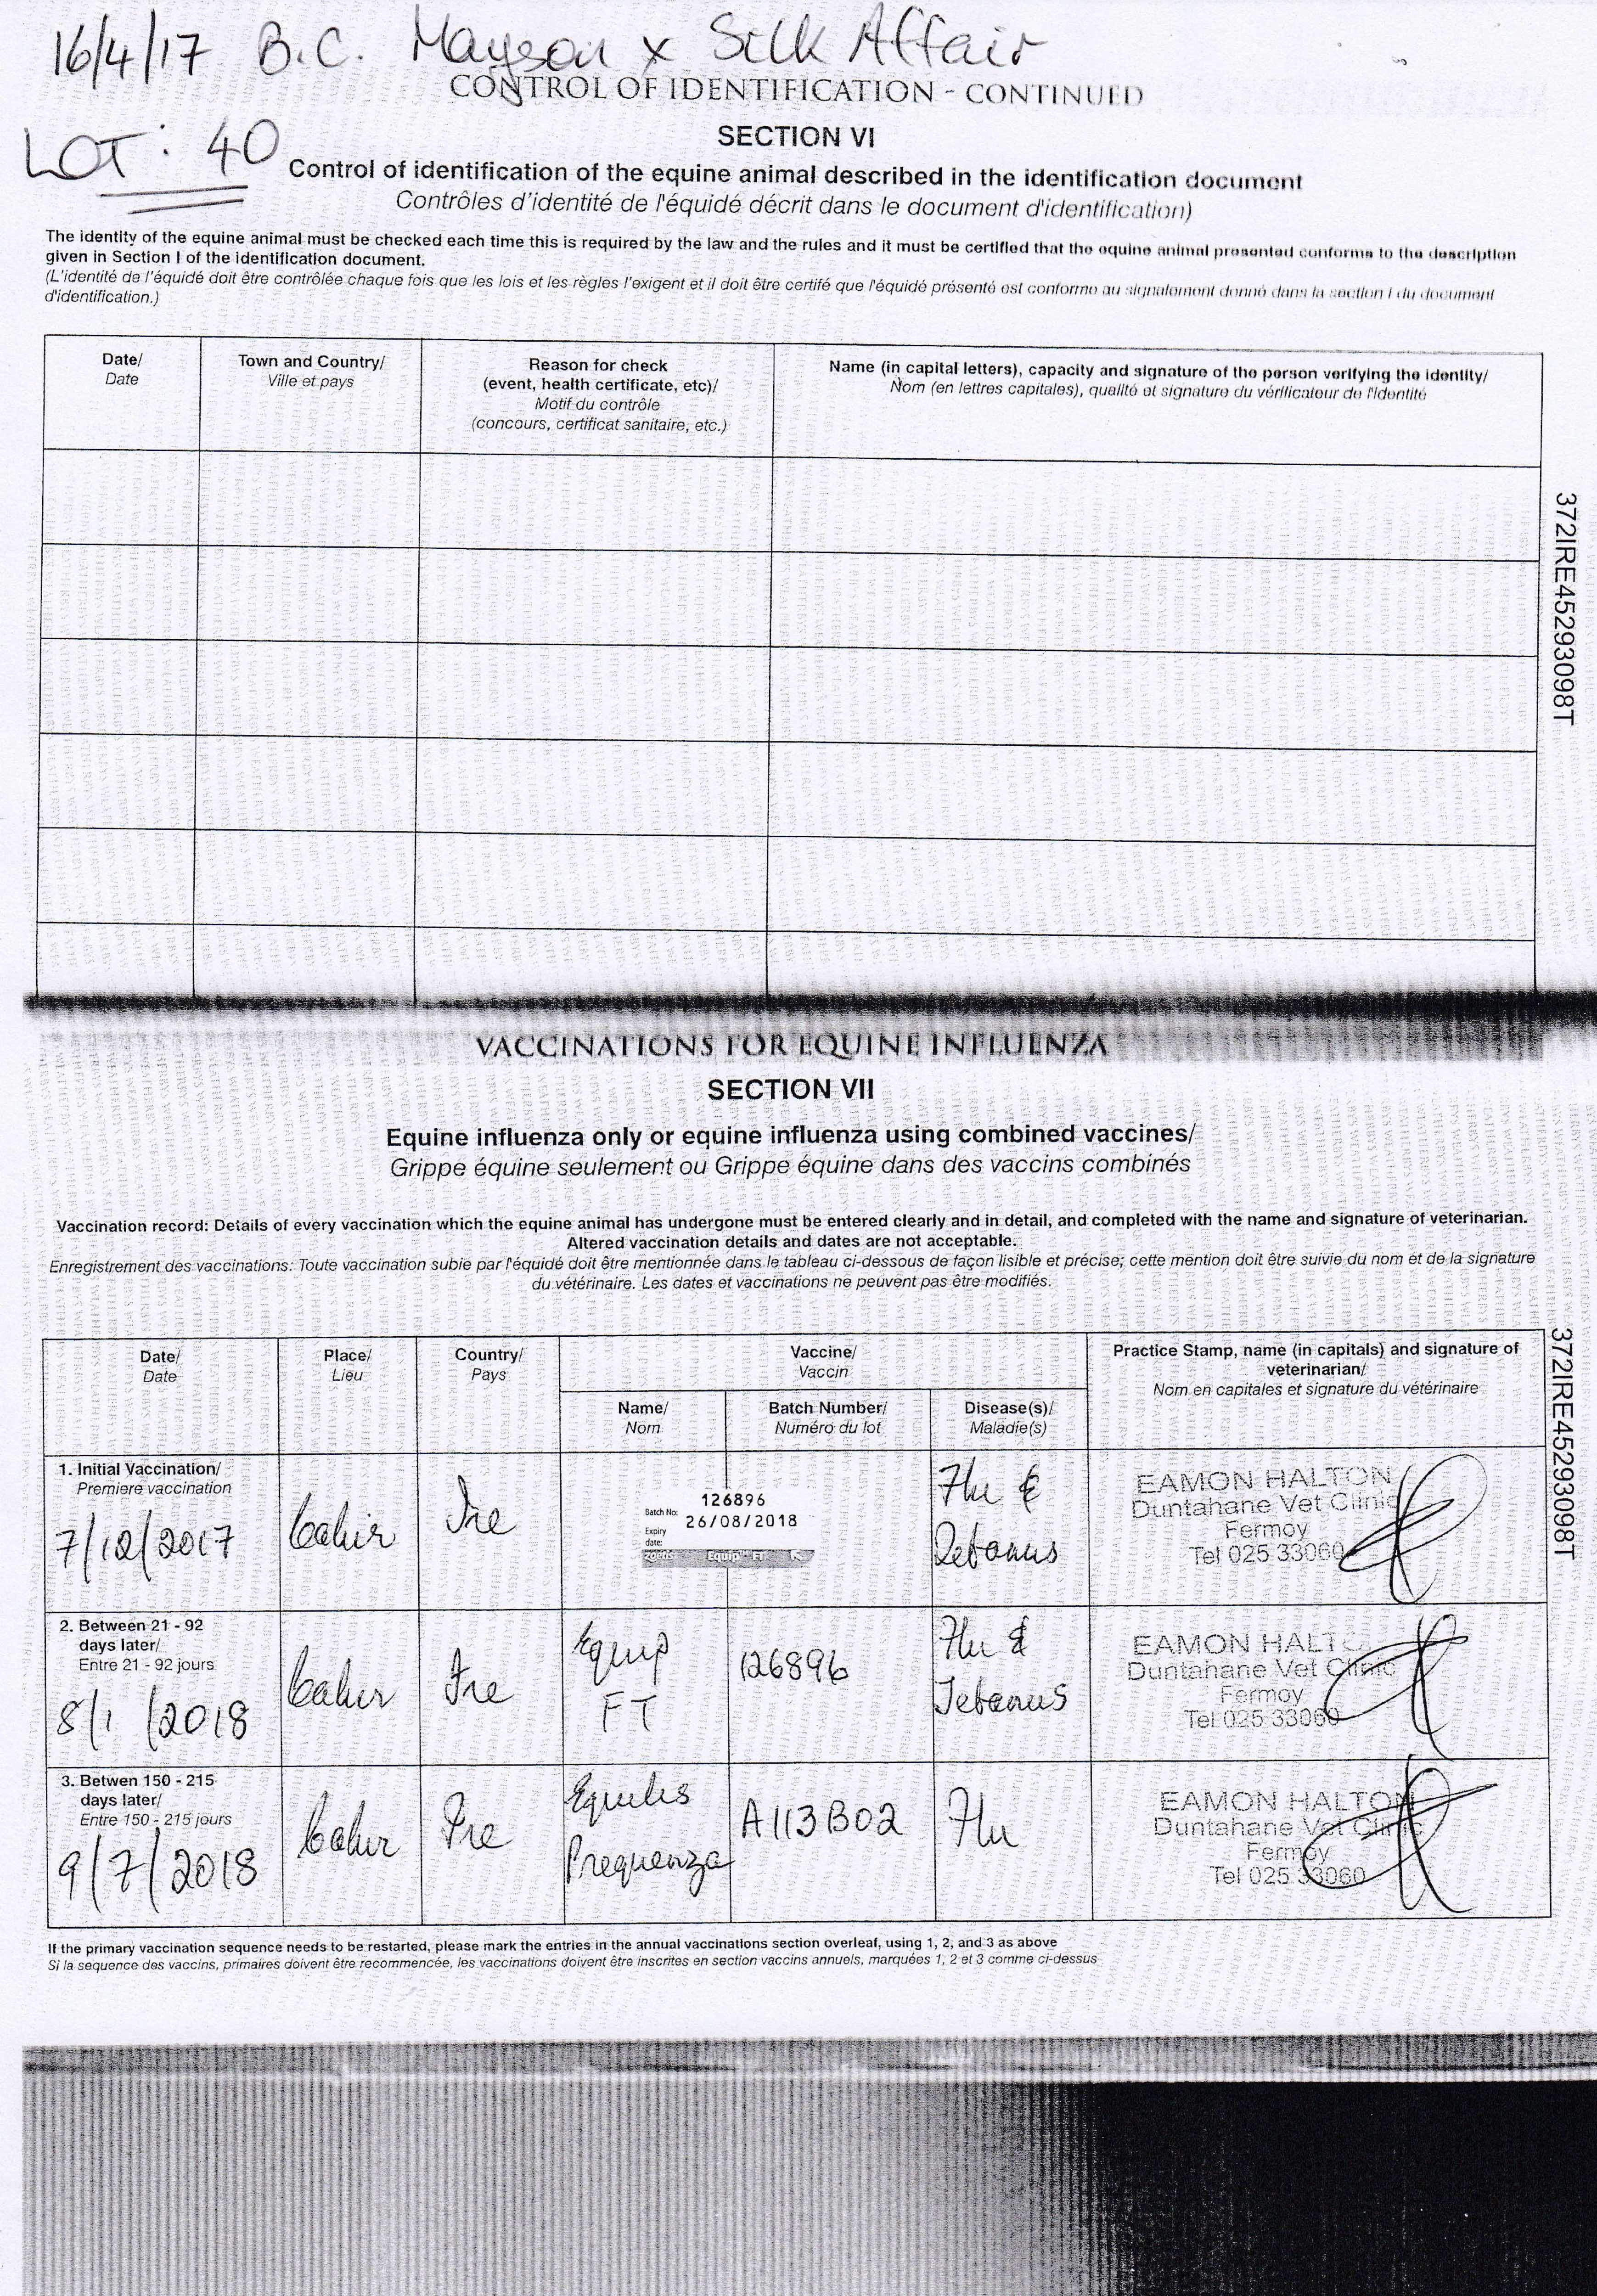 16/4/17 B.C. Mayson x Silk Affair
CONTROL OF IDENTIFICATION - CONTINUED
LOT: 40
SECTION VI
Control of identification of the equine animal described in the identification document
Contrôles d'identité de l'équidé décrit dans le document d'identification)
The identity of the equine animal must be checked each time this is required by the law and the rules and it must be certified that the equine animal presented conforms to the description
given in Section I of the identification document.
(L'identité de l'équidé doit être contrôlée chaque fois que les lois et les règles l'exigent et il doit être certifé que l'équidé présenté est conforme au signalement donné dans la section I du document
d'identification.)
Date/
Date
Town and Country/
Ville et pays
Reason for check
(event, health certificate, etc)/
Motif du contrôle
(concours, certificat sanitaire, etc.)
Name (in capital letters), capacity and signature of the person verifying the identity/
Nom (en lettres capitales), qualité et signature du vérificateur de l'identité
372IRE45293098T
VACCINATIONS FOR EQUINE INFLUENZA
SECTION VII
Equine influenza only or equine influenza using combined vaccines/
Grippe équine seulement ou Grippe équine dans des vaccins combinés
Vaccination record: Details of every vaccination which the equine animal has undergone must be entered clearly and in detail, and completed with the name and signature of veterinarian.
Altered vaccination details and dates are not acceptable.
Enregistrement des vaccinations: Toute vaccination subie par l'équidé doit être mentionnée dans le tableau ci-dessous de façon lisible et précise; cette mention doit être suivie du nom et de la signature
du vétérinaire. Les dates et vaccinations ne peuvent pas être modifiés.
372IRE45293098T
Date/
Date
Place/
Lieu
Country/
Pays
Vaccine/
Vaccin
Name/
Nom
Batch Number/
Numéro du lot
Disease(s)/
Maladie(s)
Practice Stamp, name (in capitals) and signature of
veterinarian/
Nom en capitales et signature du vétérinaire
1. Initial Vaccination/
Premiere vaccination
7/12/2017
Cahir
Ire
126896
Batch No:
26/08/2018
Expiry
date:
zoetis Equip™ FT
Flu &
Tetanus
EAMON HALTON
Duntahane Vet Clinic
Fermoy
Tel 025 33060
2. Between 21 - 92
days later/
Entre 21 - 92 jours
8/1/2018
Cahir
Ire
Equip
FT
126896
Flu &
Tetanus
EAMON HALTON
Duntahane Vet Clinic
Fermoy
Tel 025 33060
3. Betwen 150 - 215
days later/
Entre 150 - 215 jours
9/7/2018
Cahir
Ire
Equilis
Prequenza
A113B02
Flu
EAMON HALTON
Duntahane Vet Clinic
Fermoy
Tel 025 33060
If the primary vaccination sequence needs to be restarted, please mark the entries in the annual vaccinations section overleaf, using 1, 2, and 3 as above
Si la sequence des vaccins, primaires doivent être recommencée, les vaccinations doivent être inscrites en section vaccins annuels, marquées 1, 2 et 3 comme ci-dessus